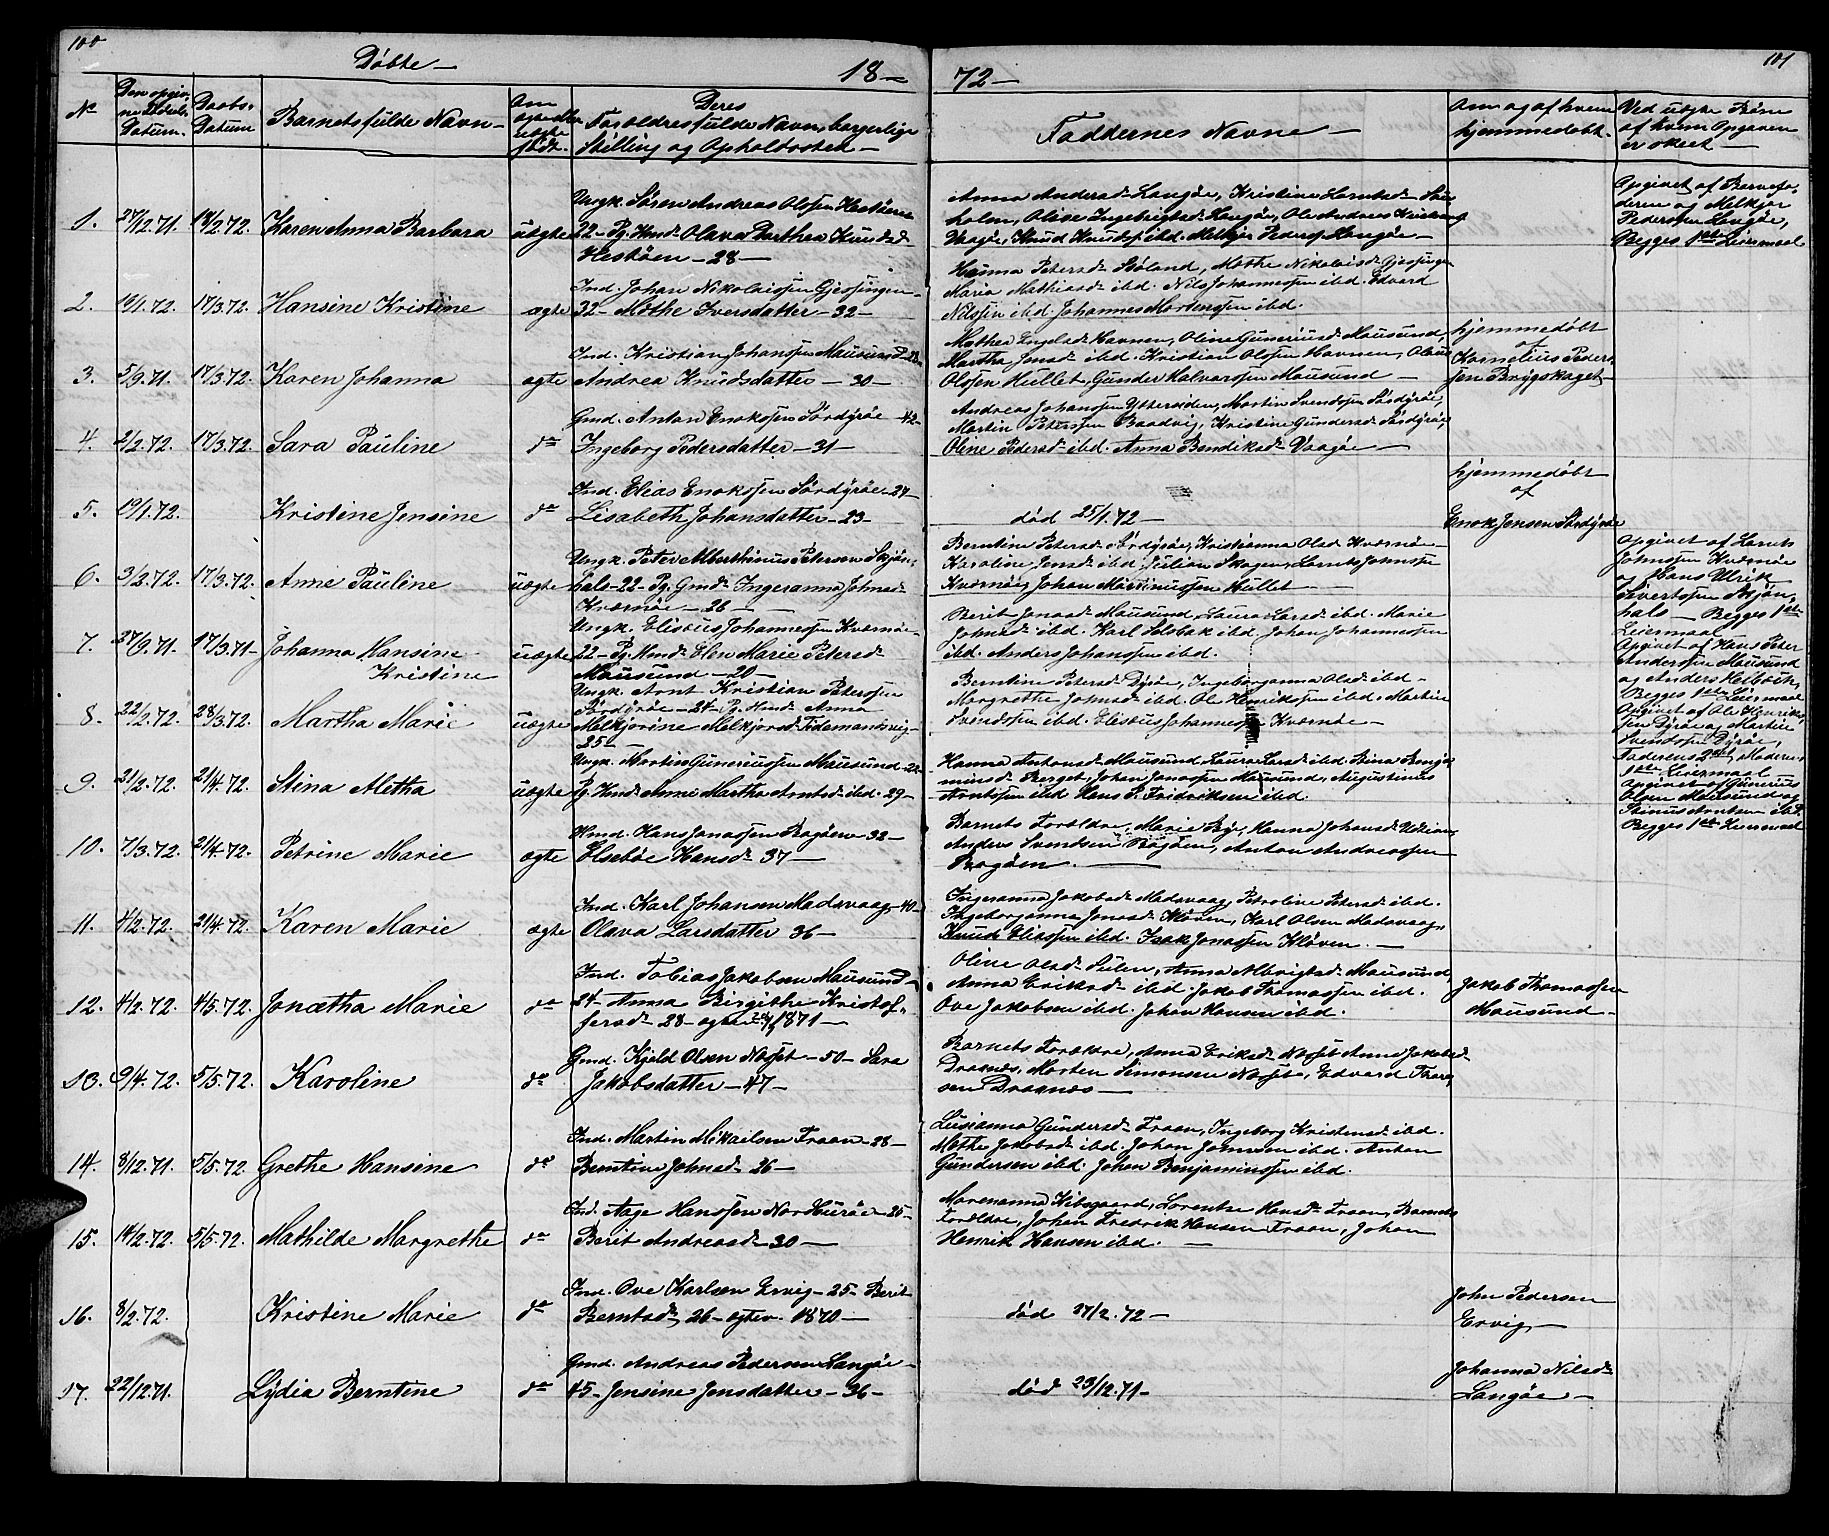 100
Døbte —
18 —
72 —
101
No
Den opgivne Fødsels Datum.
Daabs-Datum
Barnets fulde Navn —
Om ægte eller uægte født.
Deres Forældres fulde Navn, borgerlige Stilling og Opholdssted —
Faddernes Navne —
Om og af hvem hjemmedøbt.
Ved uægte Børn af hvem Opgaven er skeet —
1. 27/12.71. 18/2.72. Karen Anna Barbara uægte
Ungk. Søren Andreas Olsen Hestøen
22 — Pg. Kmd. Olava Darthea Knudsd.
Hestøen — 28 —
Anna Andersd. Langøe, Kristine Larntsd. Sau-
holm, Oline Ingebrigtsd. Langøe, Ole Andreas Kristians
Vaagøe, Knud Knudsf. ibd. Melkjør Pedersf. Langøe —
Opgivet af Barnefa-
deren og Melkjør
Pedersen Langøe,
Begges 1ste Leiermaal
2. 19/1.72. 17/3.72. Hansine Kristine ægte
Ind. Johan Nikolaissen Gjessingen
32 — Mothe Iversdatter — 32 —
Hanna Petersd. Søland, Mothe Nikolaisd. Gjessingen
Maria Mathiasd. ibd. Nils Johannessen ibd. Edvard
Nilssen ibd. Johannes Mortenssen ibd.
3. 5/9.71. 17/3.72. Karen Johanna ægte
Ind. Kristian Johanssen Mausund
Andrea Knudsdatter — 30 —
Mathea Havnen, Oline Guneriusd. Mausund,
Martha Jensd. ibd. Kristian Olssen Havnen, Olaus
Olssen Hullet, Gunder Halvorssen Mausund —
hjemmedøbt
af
Kornelius Peder-
sen Brygskaget
4. 2/2.72. 17/3.72. Sara Pauline do
Gmd. Anton Enokssen Sørdyrøe — 42 —
Ingeborg Pedersdatter — 31 —
Andreas Johanssen Yttersiden, Martin Svendssen Sørdyrøe,
Martin Peterssen Baadvig, Kristine Gundersd. Sørdyrøe,
Oline Pedersd. ibd. Anna Bendiksd. Vaagøe —
5. 19/1.72. Kristine Jensine do
Ind. Elias Enokssen Sørdyrøe — 27 —
Lisabeth Johansdatter — 23 —
død 25/1.72 —
hjemmedøbt
af
Enok Jensen Sørdyrøe
6. 3/2.72. 17/3.72. Anne Pauline uægte
Ungk. Peter Alberthinus Petersen Skjøn-
hals — 22 — Pg. Gmd. Ingeranna Johnsd.
Kværnøe — 26 —
Berntine Petersd. Sørdyrøe, Kristianna Olsd. Kværnøe
Karoline Jensd. ibd. Julian Skagen, Larnts Johnssen
Kværnøe, Johan Martinussen Hullet
Opgivet af Larnts
Johnssen Kværnøe
og Hans Ulrik
Sivertsen Skjøn-
hals — Begges 1ste
Leiermaal
7. 27/9.71. 17/3.71 — Johanna Hansine Kristine uægte
Ungk. Elisæus Johannessen Kværnøe
22 — Pg. Kmd. Elen Marie Petersd.
Mausund — 20 —
Berit Jonasd. Mausund, Laura Larsd. ibd. Marie
Johnsd. ibd. Karl Solbak ibd. Johan Johannessen
ibd. Anders Johanssen ibd.
Opgivet af Hans Peter
Anderssen Mausund
og Anders
Begges 1ste Leiermaal
8. 22/2.72. 28/3.72. Martha Marie uægte
Ungk. Arnt Kristian Peterssen
Sørdyrøe — 24 — Pg. Kmd. Anna
Melkjorine Melkjorsd. Tidemandsvig
25 —
Berntine Petersd. Dyrøe, Ingeborganna Olsd. ibd —
Margrethe Johnsd. ibd. Ole Henrikssen ibd. Martin
Svendssen ibd. Elisæus Johannessen Kværnøe —
Opgivet af Ole Henriks-
sen Dyrøe og Martin
Svendssen Dyrøe,
Faderens 2det, Moderens
1ste Leiermaal
9. 21/2.72. 21/4.72. Stina Aletha uægte
Ungk. Martin Guneriussen Mausund
Pg. Kmd. Anne Martha Arntsd. ibd. 29 —
Hanna Antonsd. Mausund, Laura Larsd. ibd. Stina Benja-
minsd. Berget, Johan Jonassen Mausund, Augustinus
Arntssen ibd. Hans P. Fridriksen ibd.
opgivet af Gunerius
Olsen Mausund og
Stenus Arntsen ibd.
Begges 1ste Leiermaal
10. 7/3.72. 21/4.72. Petrine Marie ægte
Kmd. Hans Jonassen Bogøen — 32 —
Elsebøe Hansd. 37 —
Barnets Forældre, Marie Bye, Hanna Johansd.
Anders Svendsen Bogøen, Anton Andreassen
Bogøen. —
11. 4/2.72. 21/4.72. Karen Marie ægte
Ind. Karl Johansen Madsvaag — 40 —
Olava Larsdatter 36 —
Ingeranna Jakobsd. Madsvaag, Petroline Petersd. ibd.
Ingeborganna Jonasd. Kløven, Karl Olsen Madsvaag,
Knud Eliassen ibd. Isak Jonassen Kløven. —
12. 4/2.72. 4/5.72. Jonætha Marie do
Ind. Tobias Jakobsen Mausund —
24 — Anna Birgithe Kristof-
fersd. 28 — ægtev. 1871 —
Oline Olsd. Sulen, Anna Albrigtsd. Mausund,
Anna Eriksd. ibd. Jakob Thomassen ibd.
Ove Jakobsen ibd. Johan Hansen ibd.
Jakob Thomassen
Mausund —
13. 9/4.72. 5/5.72. Karoline do
Gmd. Kjeld Olsen Nesset — 50 — Sara
Jakobsdatter — 47 —
Barnets Forældre, Anna Eriksd. Nesset, Anne Jakobsd.
Dragnæs, Morten Simonsen Nesset, Edvard Thor-
sen Dragnæs —
14. 8/12.71. 5/5.72 Grethe Hansine do
Ind. Martin Mikailsen Traan — 28 —
Berntine Johnsd. 26 —
Lusianna Gundersd. Traan, Ingeborg Kristensd. ibd.
Mothe Jakobsd. ibd. Johan Johnsen ibd. Anton
Gundersen ibd. Johan Benjaminssen ibd.
15. 14/2.72. 5/5.72. Mathilde Margrethe do
Ind. Aage Hanssen Nordhurøe — 25 —
Berit Andreasd. — 30 —
Marenanna Kibsgaard, Lorentse Hansd. Traan, Barnets
Forældre, Johan Fredrik Hansen Traan, Johan
Henrik Hansen ibd. —
16. 8/2.72. Kristine Marie do
Ind. Ove Karlsen Ervig — 25 — Berit
Berntsd. 26 — ægtev. 1870 —
død 27/2.72 —
John Pedersen
Ervig —
17. 22/12.71. Lydia Berntine do
Gmd. Andreas Pedersen Langøe —
45 — Jensine Jensdatter — 36 —
død 23/12.71 —
Johanna Nilsd.
Langøe —